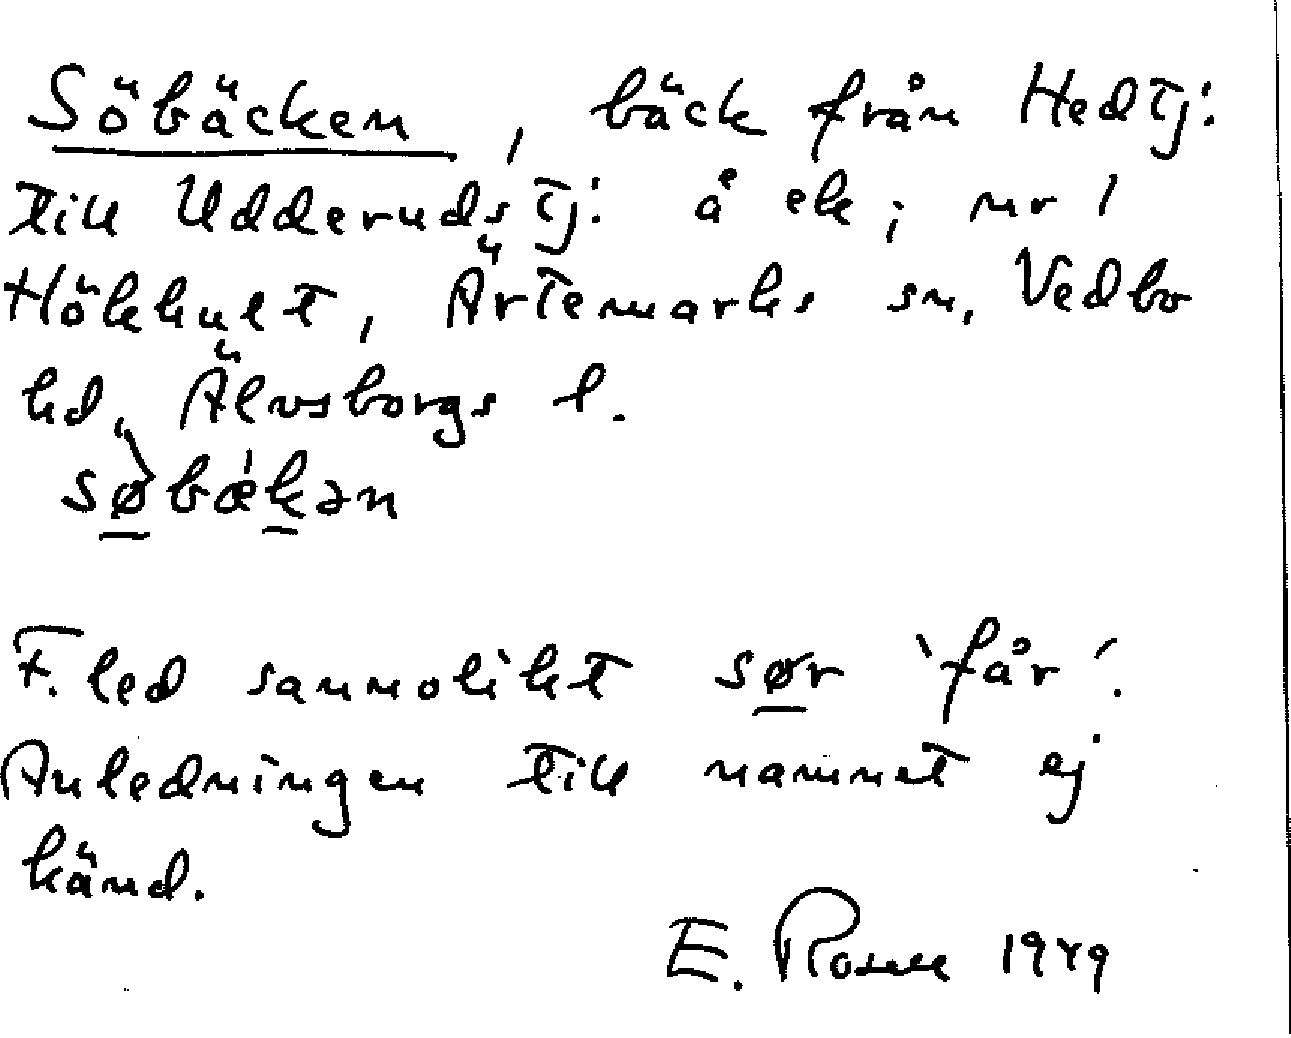 Söbäcken, bäck från Hedtj:
till Udderudstj: å ek; nr 1
Hökhult, Ärtemarks sn, Vedbo
hd, Älvsborgs l.
sø̀bǽkən
F. led sannolikt sør 'får'.
Anledningen till namnet ej
känd.
E. Rosell 1949